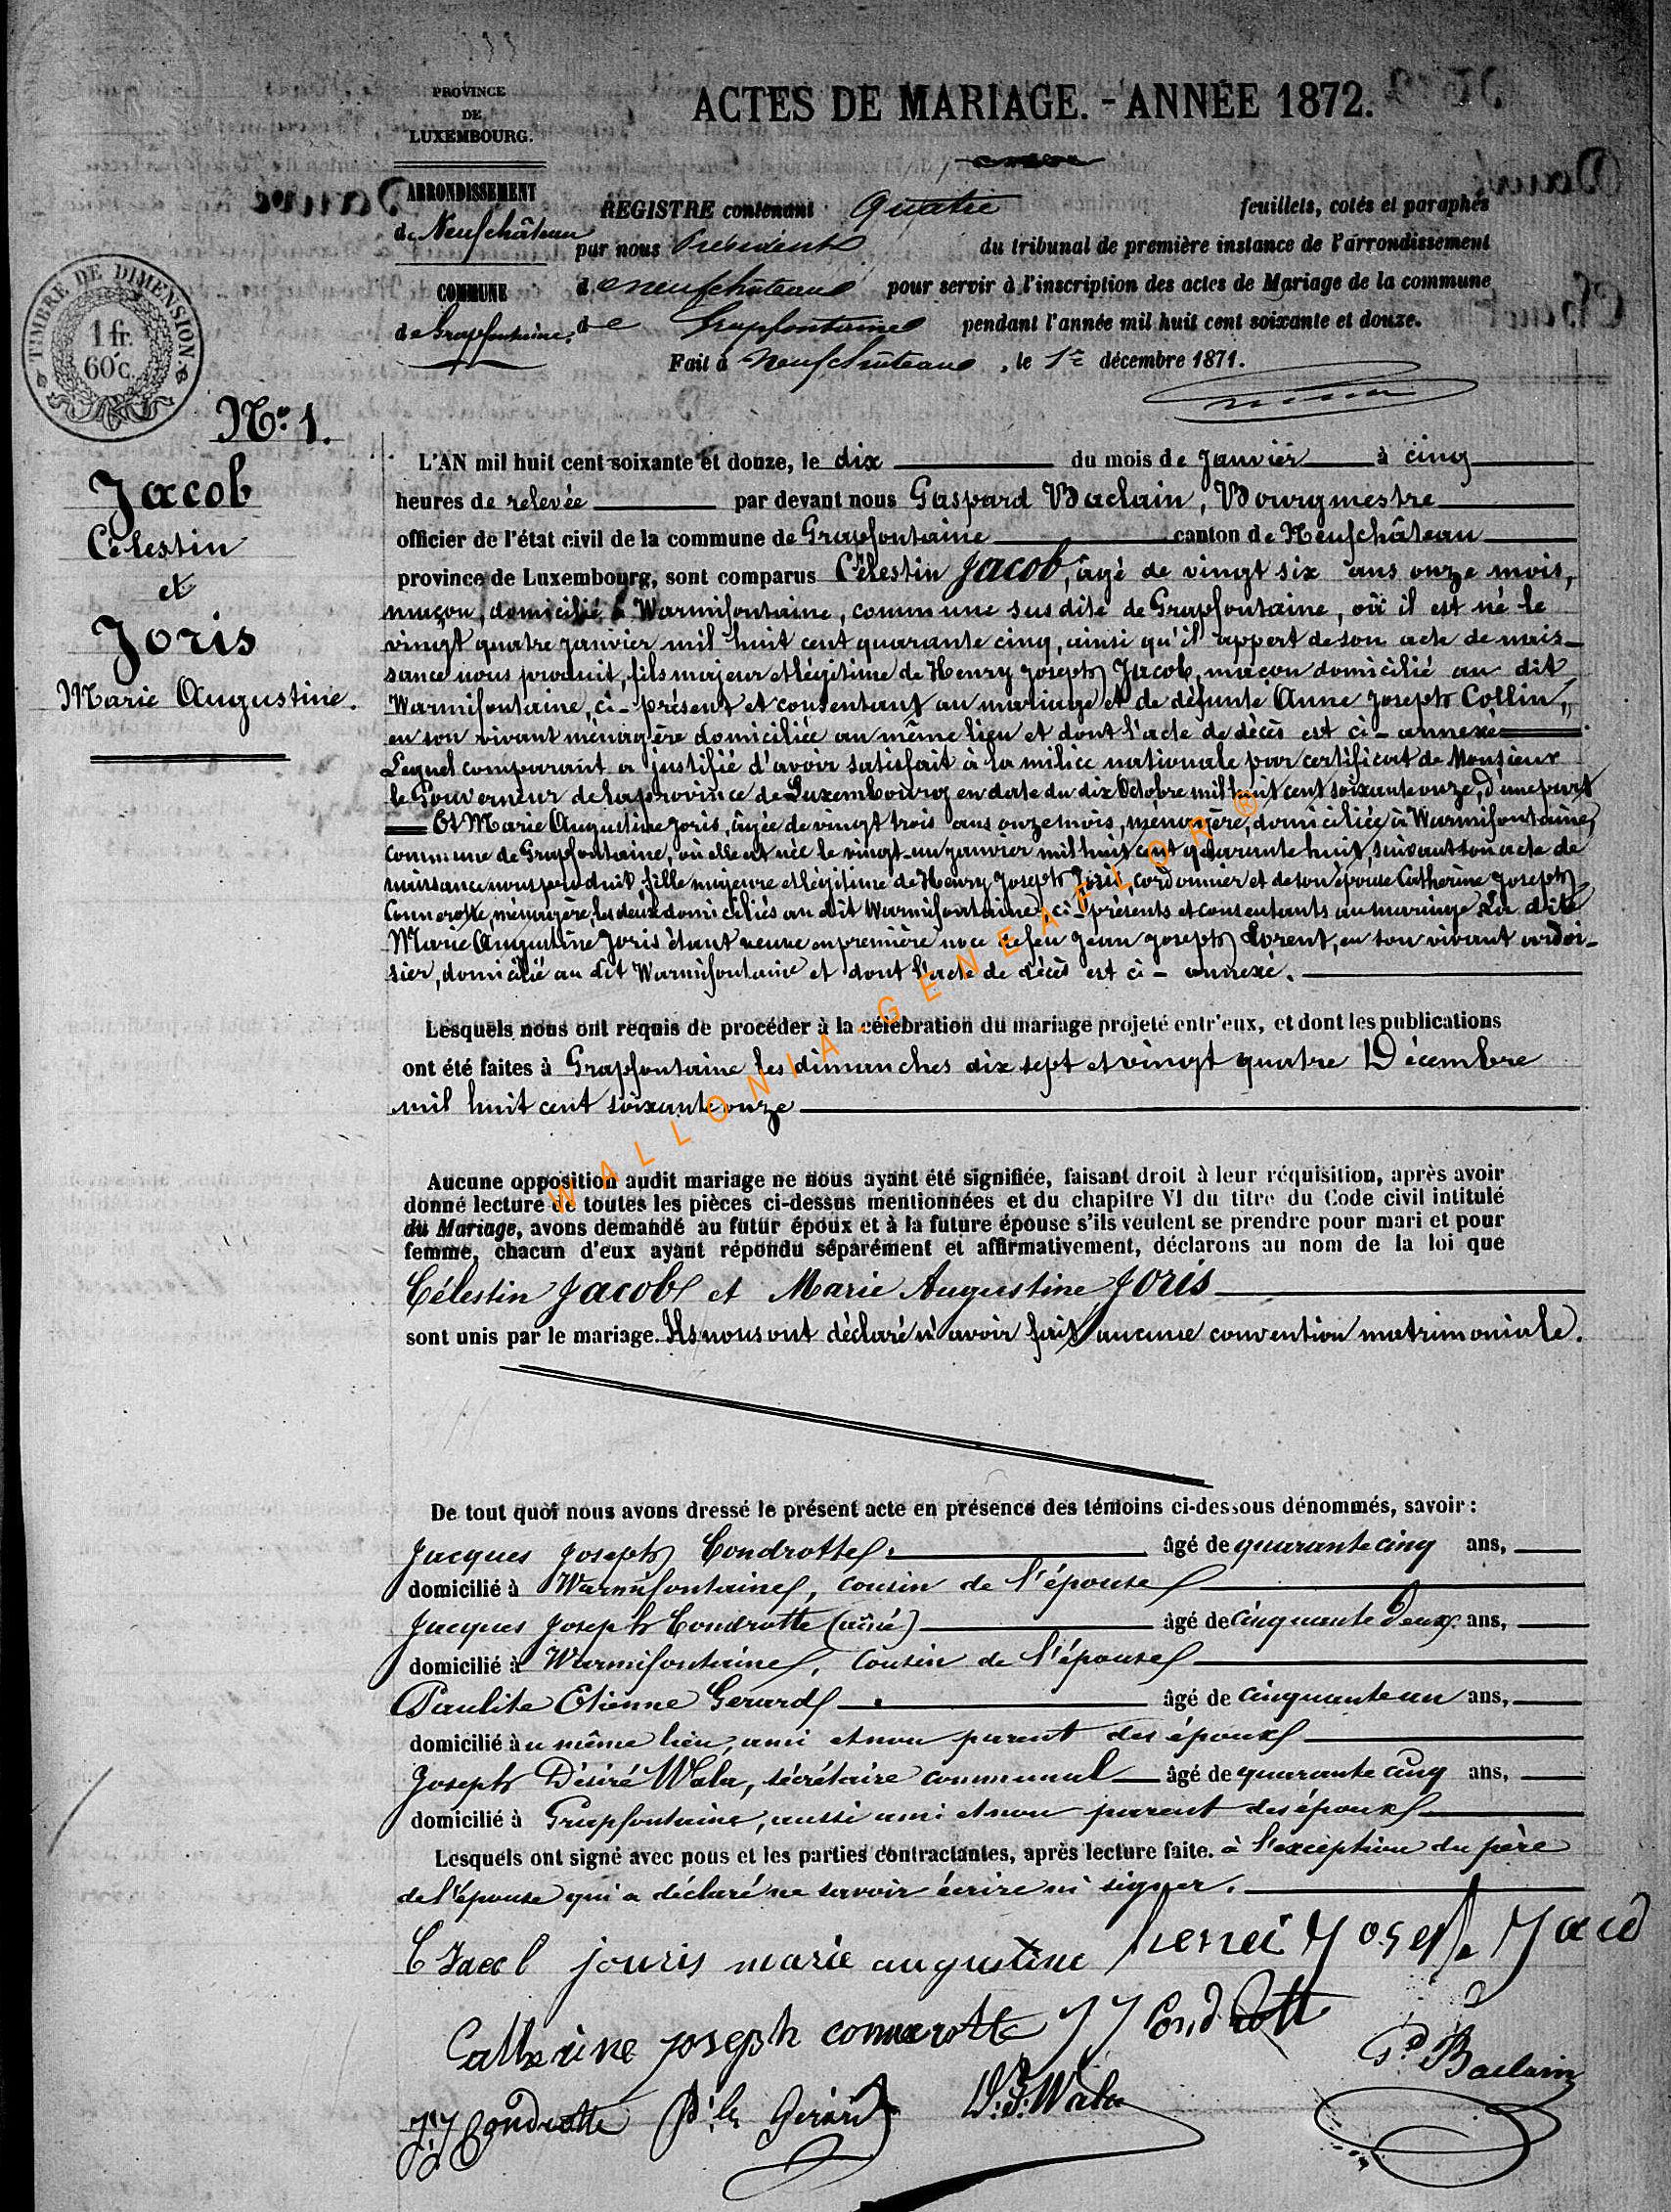 PROVINCE
DE
LUXEMBOURG.
ACTES DE MARIAGE. - ANNÉE 1872.
ARRONDISSEMENT
de Neufchâteau
COMMUNE
de Grapfontaine.
REGISTRE contenant Quatre feuillets, cotés et paraphés
par nous Président du tribunal de première instance de l'arrondissement
de Neufchâteau pour servir à l'inscription des actes de Mariage de la commune
de Grapfontaine pendant l'année mil huit cent soixante et douze.
Fait à Neufchâteau, le 1er décembre 1871.
TIMBRE DE DIMENSION
1 fr.
60 c.
No. 1.
Jacob
Célestin
et
Joris
Marie Augustine.
L'AN mil huit cent soixante et douze, le dix du mois de Janvier à cinq
heures de relevée par devant nous Gaspard Baclain, Bourgmestre
officier de l'état civil de la commune de Grapfontaine canton de Neufchâteau
province de Luxembourg, sont comparus Célestin Jacob, âgé de vingt six ans onze mois,
maçon, domicilié à Warmifontaine, commune sus dite de Grapfontaine, où il est né le
vingt quatre janvier mil huit cent quarante cinq, ainsi qu'il appert de son acte de nais-
sance nous produit, fils majeur et légitime de Henry Joseph Jacob, maçon domicilié au dit
Warmifontaine, ci-présent et consentant au mariage et de défunte Anne Joseph Collin,
en son vivant ménagère domiciliée au même lieu et dont l'acte de décès est ci-annexé
Lequel comparant a justifié d'avoir satisfait à la milice nationale par certificat de Monsieur
le Gouverneur de la province de Luxembourg en date du dix Octobre mil huit cent soixante onze, d'une part
Et Marie Augustine Joris, âgée de vingt trois ans onze mois, ménagère, domiciliée à Warmifontaine,
commune de Grapfontaine, où elle est née le vingt-un janvier mil huit cent quarante huit, suivant son acte de
naissance nous produit, fille majeure et légitime de Henry Joseph Joris, cordonnier et de son épouse Catherine Joseph
Connerotte, ménagère, les deux domiciliés au dit Warmifontaine, ci-présents et consentants au mariage La dite
Marie Augustine Joris étant veuve en première noce de feu Jean Joseph Lorent, en son vivant ardoi-
sier, domicilié au dit Warmifontaine et dont l'acte de décès est ci-annexé.
Lesquels nous ont requis de procéder à la célébration du mariage projeté entr'eux, et dont les publications
ont été faites à Grapfontaine les dimanches dix sept et vingt quatre Décembre
mil huit cent soixante onze
Aucune opposition audit mariage ne nous ayant été signifiée, faisant droit à leur réquisition, après avoir
donné lecture de toutes les pièces ci-dessus mentionnées et du chapitre VI du titre du Code civil intitulé
du Mariage, avons demandé au futur époux et à la future épouse s'ils veulent se prendre pour mari et pour
femme, chacun d'eux ayant répondu séparément et affirmativement, déclarons au nom de la loi que
Célestin Jacob et Marie Augustine Joris
sont unis par le mariage. Ils nous ont déclaré n'avoir fait aucune convention matrimoniale.
De tout quoi nous avons dressé le présent acte en présence des témoins ci-dessous dénommés, savoir :
Jacques Joseph Condrotte, âgé de quarante cinq ans,
domicilié à Warmifontaine, cousin de l'épouse
Jacques Joseph Condrotte (aîné) âgé de cinquante Deux ans,
domicilié à Warmifontaine, cousin de l'épouse
Paulite Etienne Gerard âgé de cinquante un ans,
domicilié au même lieu, ami et non parent des époux
Joseph Désiré Wala, secrétaire communal âgé de quarante cinq ans,
domicilié à Grapfontaine, aussi ami et non parent des époux
Lesquels ont signé avec nous et les parties contractantes, après lecture faite. à l'exception du père
de l'épouse qui a déclaré ne savoir écrire ni signer.
C Jacob jouris marie augustine henri Joseph Jacob
Catherine joseph connerotte J J Condrott
Gd Baclain
J J Condrotte Gérard D. J. Wala
WALLONIA-GENEAFLOR®